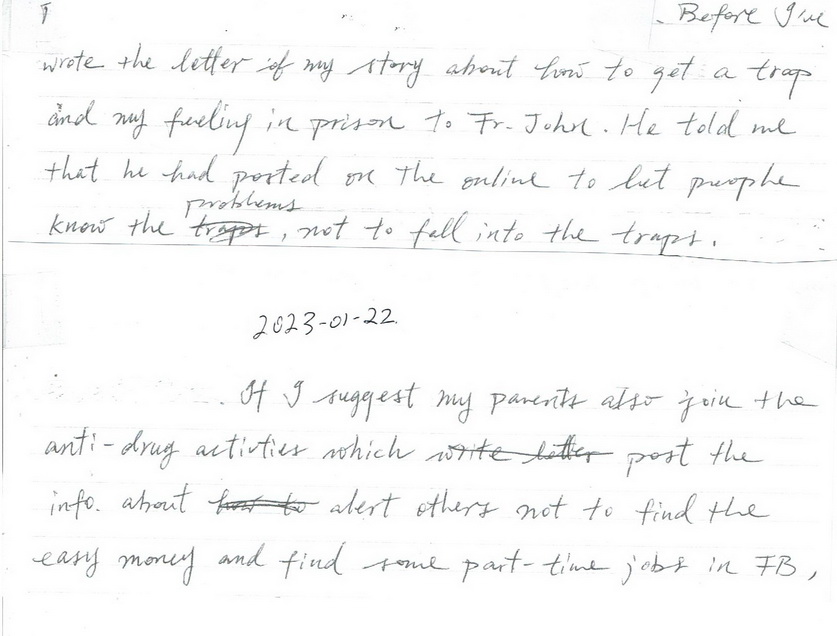 Before I've
wrote the letter of my story about how to get a trap
and my fueling in prison to Fr. John. He told me
that he had posted on the online to let peophe
problems
know the traps, not to fall into the traps.
2023-01-22
If I suggest my parents also join the
anti-drug activties which write letter post the
info. about how to alert others not to find the
easy money and find some part-time jobs in FB,